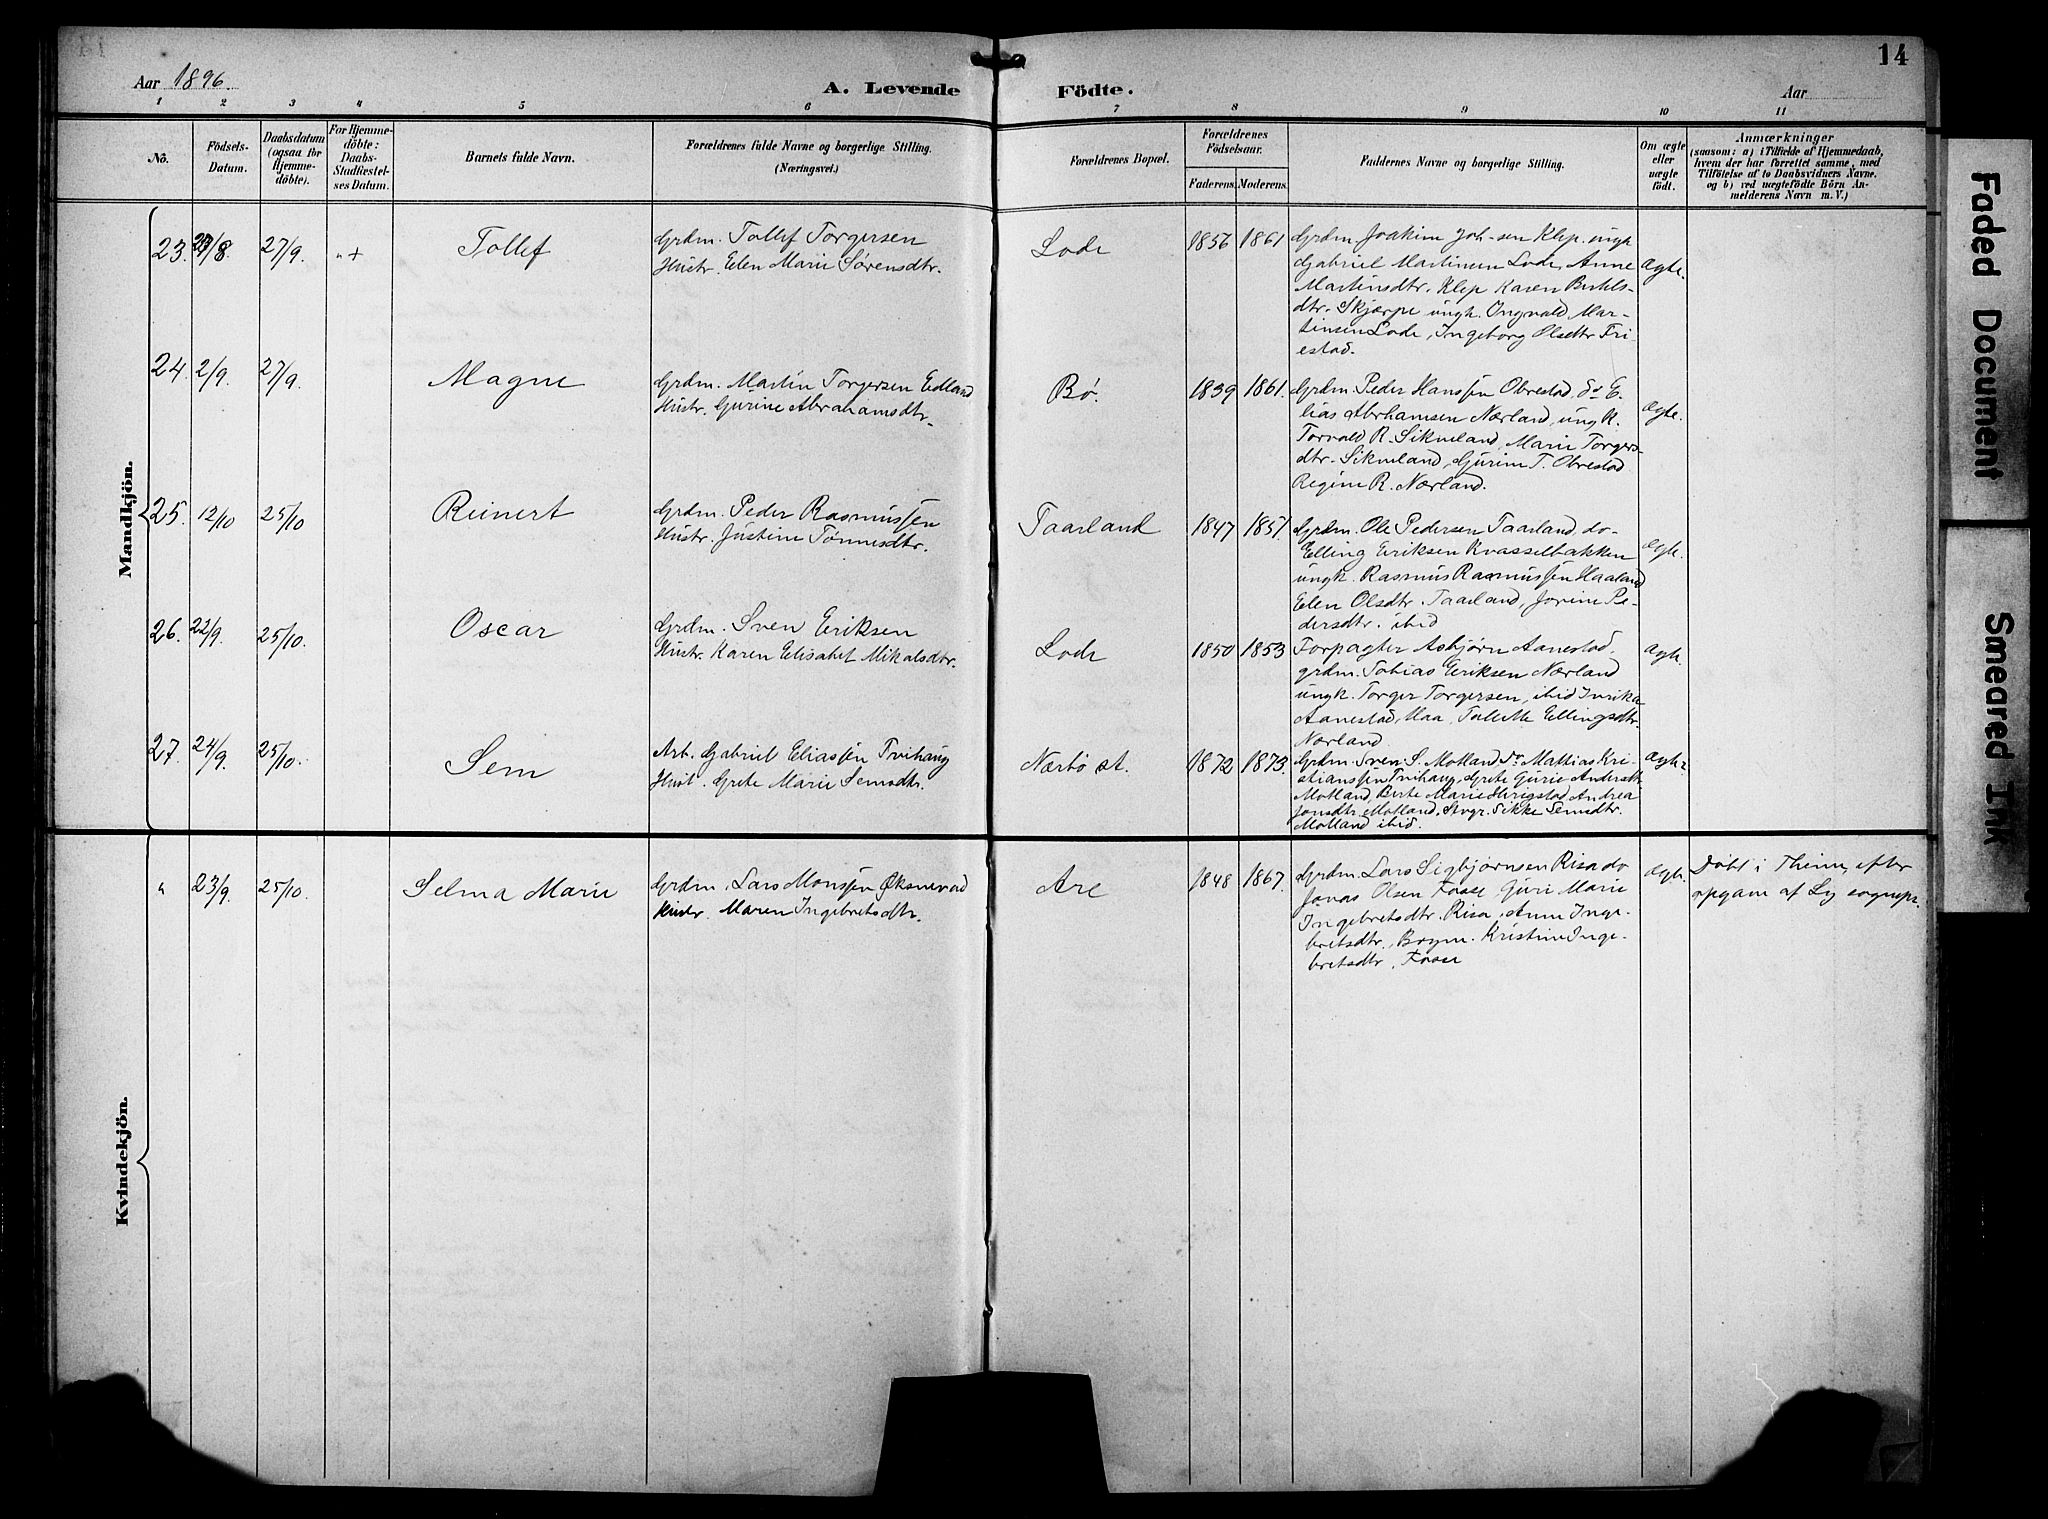 14
Aar 1896.
A. Levende Födte.
Aar
1 2 3 4 5 6 7 8 9 10 11
No.
Födsels-Datum.
Daabsdatum (ogsaa for Hjemme-döbte).
For Hjemme-döbte: Daabs-Stadfæstel-ses Datum.
Barnets fulde Navn.
Forældrenes fulde Navne og borgerlige Stilling.
(Næringsvei.)
Forældrenes Bopæl.
Forældrenes Födselsaar.
Faderens. Moderens.
Faddernes Navne og borgerlige Stilling.
Om ægte eller uægte födt.
Anmærkninger
(saasom: a) i Tilfælde af Hjemmedaab,
hvem der har forrettet samme, med
Tilföielse af to Daabsvidners Navne.
og b) ved uægtefödte Börn An-
melderens Navn m. V.)
Mandkjön.
23. /8 27/9. Tollef
Grdm. Tollef Torgersen
Hustr. Elen Marie Sørensdtr.
Lode 1856 1861
Grdm. Joakim Joh-sen Klep. ungk
Gabriel Martinsen Lode, Anne
Martinsdtr. Klep Karen
dtr. Skjærpe ungk. Ingvald Mar-
tinsen Lode, Ingeborg Olsdtr Fri
estad.
ægte.
24. 2/9. 27/9. Magne
Grdm. Martin Torgersen Edland
Hustr. Gurine Abrahamsdtr.
Bø. 1839 1861.
Grdm. Peder Hanssen Obrestad, do E-
lias Abrhamsen Nærland, ungk.
Torvald R. Sikveland, Marie Torgers-
dtr. Sikveland, Gurine T. Obrestad
Regine R. Nærland.
ægte.
25. 12/10 25/10 Reinert
Grdm. Peder Rasmussen
Hustr. Justine Tønnesdtr.
Taarland 1847 1851
Grdm. Ole Pedersen Taarland, do-
Elling Eriksen Kvasselbakken
ungk. Rasmus Rasmussen Haaland
Elen Olsdtr. Taarland, Jorine Pe-
dersdtr. ibid
ægte.
26. 22/9. 25/10. Oscar
Grdm. Sven Eriksen
Hustr. Karen Elisabet Mikalsdtr.
Lode 1850 1853
Forpagter Asbjørn Aanestad,
grdm. Tobias Eriksen Nærland
ungk. Torger Torgersen, ibid Inrika
Aanestad, Ellingsdtr.
Nærland.
ægte.
27. 24/9. 25/10. Sem
Arb. Gabriel Eliassen Tvihaug
Hust. Grete Marie Semsdtr.
Nærbø st. 1872 1873.
Grdm. Sven S. Motland do Mathias Kri-
stianssen Tvihaug, Grete Gurie Andersdtr
Motland, Berte Marie Andrea
Jonsdtr. Motland, Sikke Semsdtr.
Motland ibid.
ægte
Kvindekjön.
23/9. 25/10. Selma Marie
Grdm. Lars Monssen Øksnevad
Hustr. Maren Ingebretsdtr.
Are 1848 1867.
Grdm. Lars Sigbjørnsen Risa do
Jonas Olsen Fosse Guri Marie
Ingebretsdtr. Risa, Anne Inge-
bretsdtr., Kristine Inge-
bretsdtr. Fosse
ægte.
Døbt i Theime, efter
opgave af Ly sognepr.
Faded Document
Smeared Ink